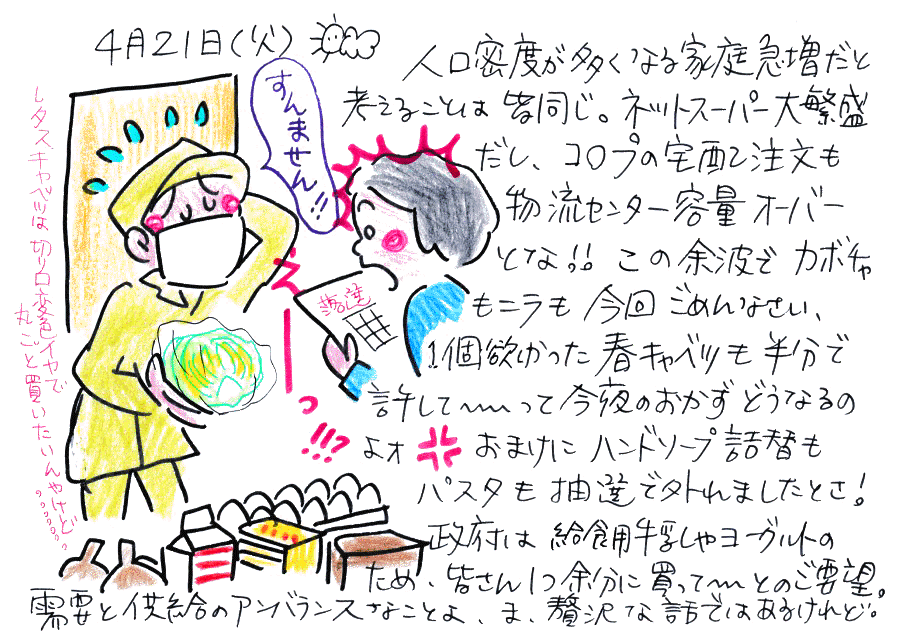 4月21日(火)
人口密度が多くなる家庭急増だと
考えることは皆同じ。ネットスーパー大繁盛
だし、コロプの宅配注文も
物流センター容量オーバー
とな!! この余波でカボチャ
もニラも今回ごめんなさい、
1個欲しかった春キャベツも半分で
許して〜〜って今夜のおかずどうなるの
よォ おまけにハンドソープ詰替も
パスタも抽選で外れましたとさ!
政府は給食用牛乳やヨーグルトの
ため、皆さん1つ余分に買って〜〜とのご要望。
需要と供給のアンバランスなことよ、ま、贅沢な話ではあるけれど。
すんません!!
え
ー
っ
!!?
落選
レタスキャベツは切り口変色イヤで
丸ごと買いたいんやけど。。。。。。